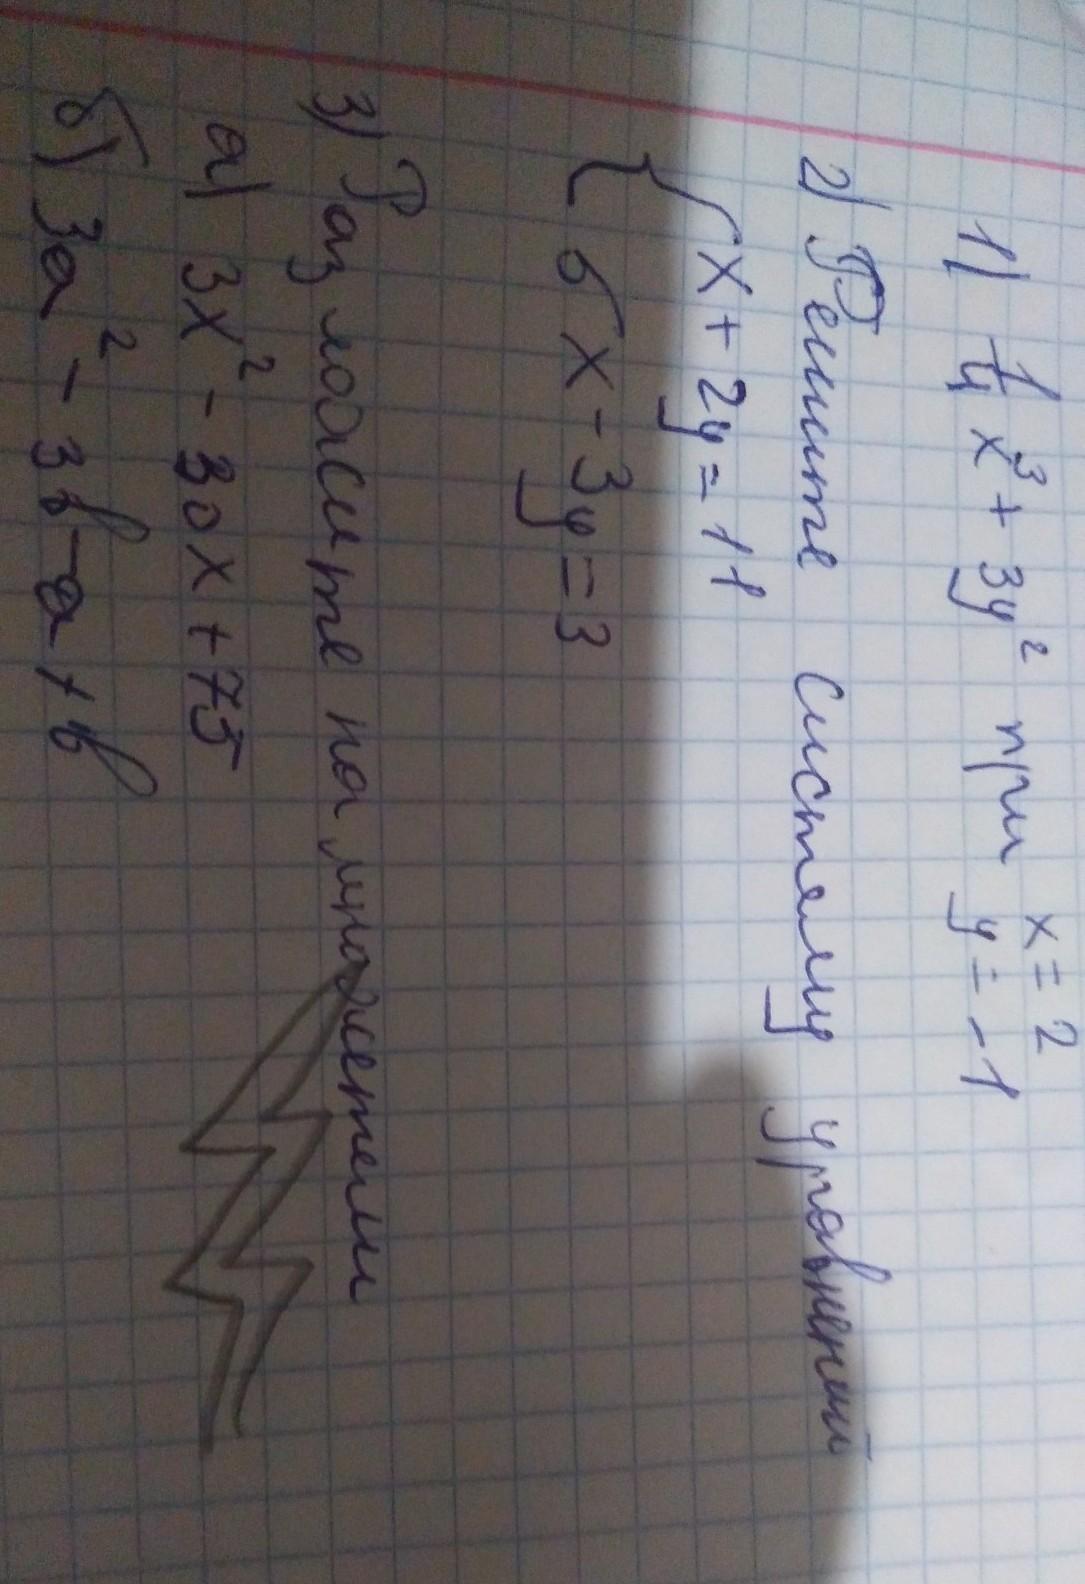 1) 1/4 x³ + 3y² при x = 2
y = -1
2) Решите систему уравнений
{ x + 2y = 11
5x - 3y = 3
3) Разложите на множетели
а) 3x² - 30x + 75
б) 3a² - 3b - a + b